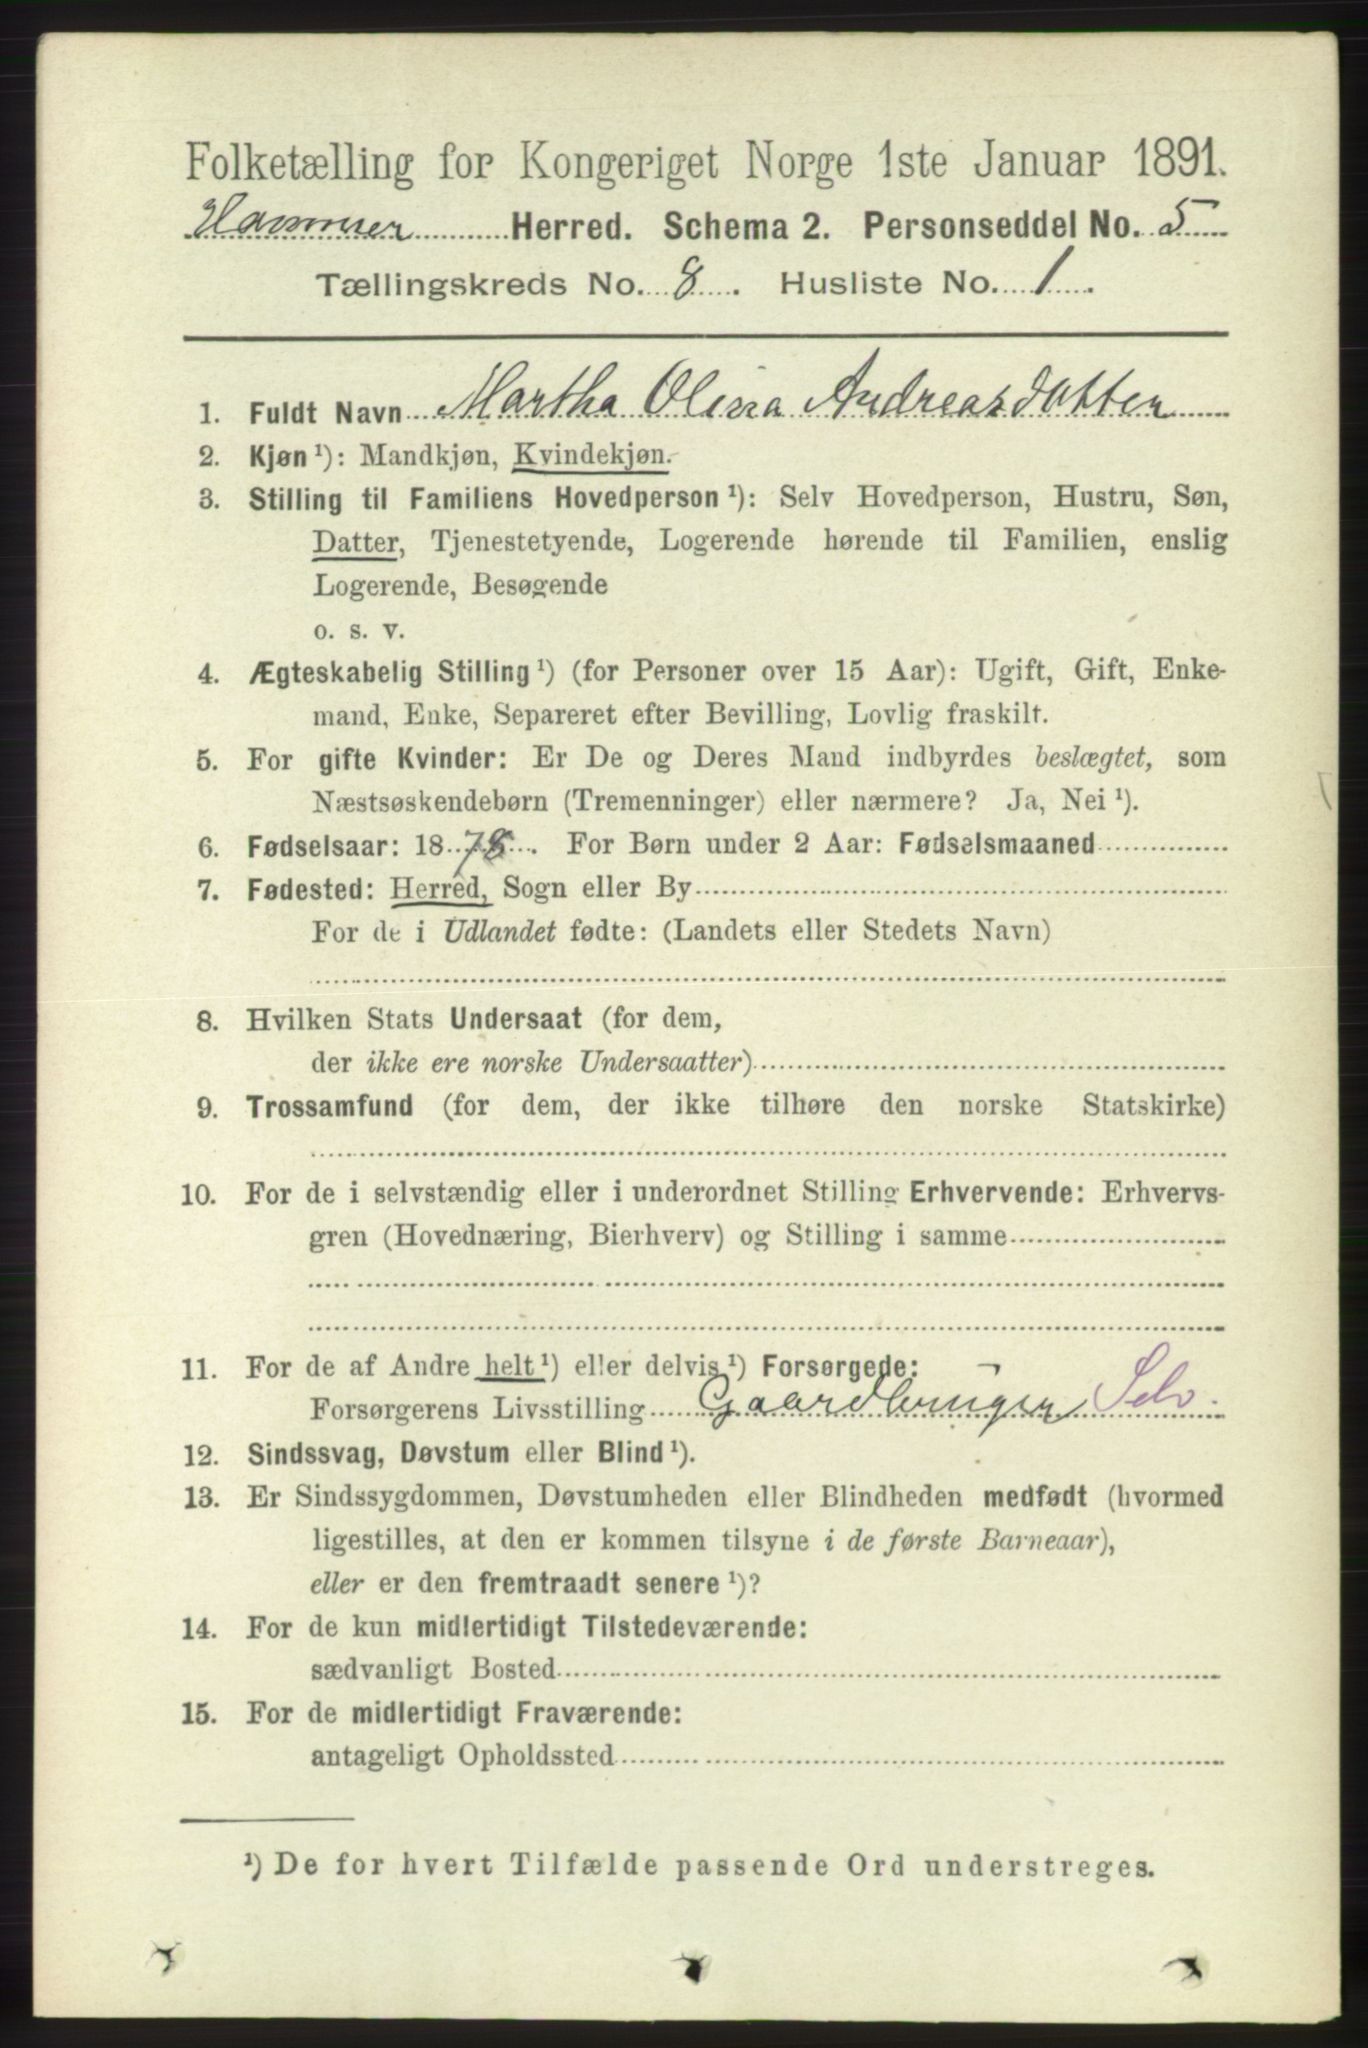 Folketælling for Kongeriget Norge 1ste Januar 1891.
Hammer Herred. Schema 2. Personseddel No. 5
Tællingskreds No. 8. Husliste No. 1.
1. Fuldt Navn Martha Olina Andreasdatter
2. Kjøn ¹): Mandkjøn, Kvindekjøn.
3. Stilling til Familiens Hovedperson ¹): Selv Hovedperson, Hustru, Søn,
Datter, Tjenestetyende, Logerende hørende til Familien, enslig
Logerende, Besøgende
o. s. v.
4. Ægteskabelig Stilling ¹) (for Personer over 15 Aar): Ugift, Gift, Enke-
mand, Enke, Separeret efter Bevilling, Lovlig fraskilt.
5. For gifte Kvinder: Er De og Deres Mand indbyrdes beslægtet, som
Næstsøskendebørn (Tremenninger) eller nærmere? Ja, Nei ¹).
6. Fødselsaar: 1878. For Børn under 2 Aar: Fødselsmaaned
7. Fødested: Herred, Sogn eller By
For de i Udlandet fødte: (Landets eller Stedets Navn)
8. Hvilken Stats Undersaat (for dem,
der ikke ere norske Undersaatter)
9. Trossamfund (for dem, der ikke tilhøre den norske Statskirke)
10. For de i selvstændig eller i underordnet Stilling Erhvervende: Erhvervs-
gren (Hovednæring, Bierhverv) og Stilling i samme
11. For de af Andre helt ¹) eller delvis ¹) Forsørgede:
Forsørgerens Livsstilling Gaardbruger Selv.
12. Sindssvag, Døvstum eller Blind ¹).
13. Er Sindssygdommen, Døvstumheden eller Blindheden medfødt (hvormed
ligestilles, at den er kommen tilsyne i de første Barneaar),
eller er den fremtraadt senere ¹)?
14. For de kun midlertidigt Tilstedeværende:
sædvanligt Bosted
15. For de midlertidigt Fraværende:
antageligt Opholdssted
¹) De for hvert Tilfælde passende Ord understreges.